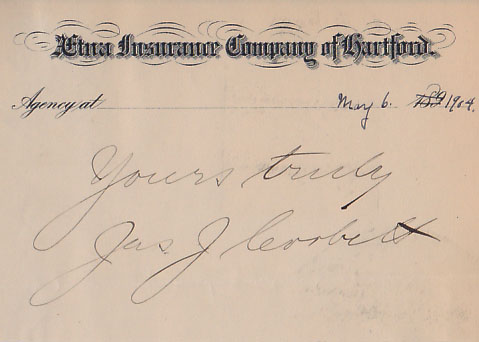 Ætna Insurance Company of Hartford.
Agency at May 6. 1904.
Yours truly
Jas. J Corbett